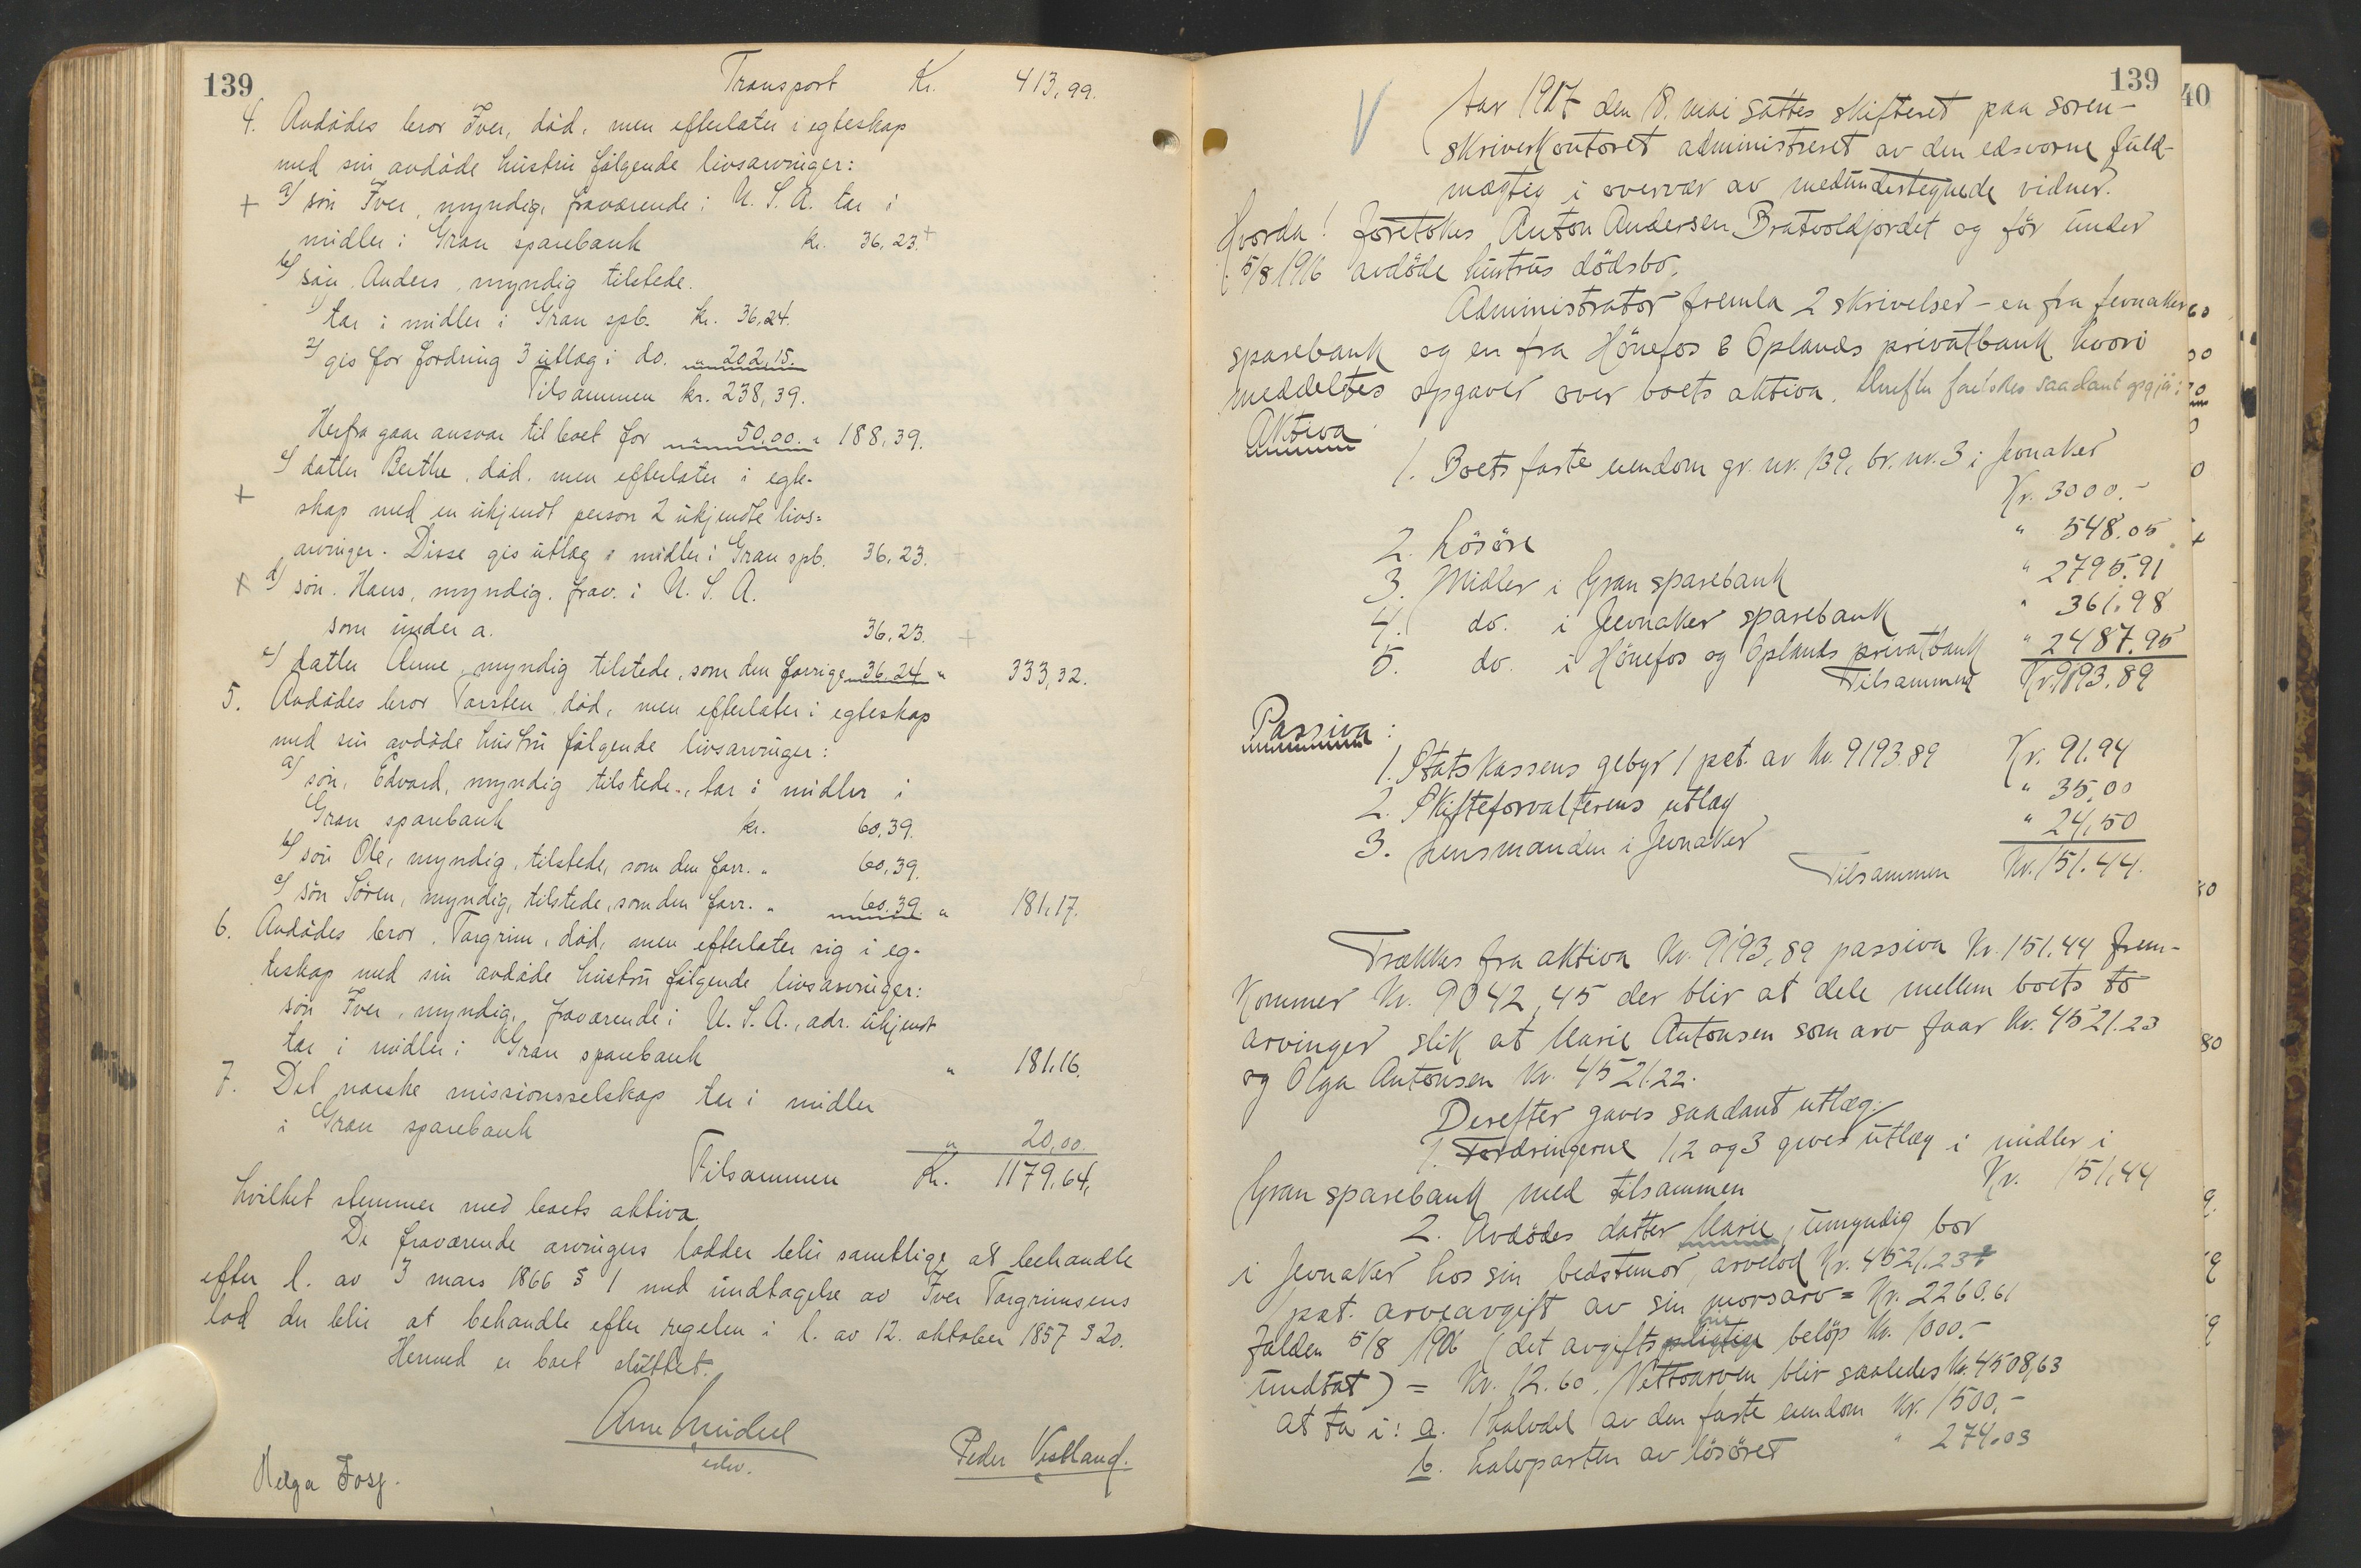 139
Transport Kr. 413,99.
4. Avdödes bror Iver, död, men efterlater i egteskap
med sin avdöde hustru fölgende livsarvinger:
+ a) sön Iver, myndig, fraværende i U. S. A. tar i
midler i Gran sparebank kr. 36,23. +
b) sön, Anders, myndig tilstede.
1) tar i midler i Gran spb. kr. 36,24.
2) gis for fordring 3 utlæg i do. " 202,15.
Tilsammen kr. 238,39.
Herfra gaar ansvar til boet for " 50,00. " 188,39.
c) datter Berthe, död, men efterlater i egte-
+
skap med en ukjendt person 2 ukjendte livs=
arvinger. Disse gis utlæg i midler i Gran spb. 36,23. +
+ d) sön. Hans, myndig. frav. i U. S. A.
som under a. 36,23. +
e) datter Anne, myndig tilstede, som den forrige 36,24 " 333,32.
5. Avdödes bror Torsten, död, men efterlater i egteskap
med sin avdöde hustru fölgende livsarvinger:
a) sön, Edvard, myndig tilstede, tar i midler i
Gran sparebank kr. 60,39.
b) sön Ole, myndig, tilstede, som den forr. " 60,39.
c) sön Sören, myndig, tilstede, som den forr. " 60.39. " 181,17.
6. Avdödes bror, Torgrim, död, men efterlater sig i eg-
teskap med sin avdöde hustru fölgende livsarvinger:
sön Iver, myndig, fraværende i U. S. A., adr. ukjendt
tar i midler i Gran sparebank " 181,16.
7. Det norske missionsselskap tar i midler
i Gran sparebank " 20,00.
Tilsammen Kr. 1179,64,
hvilket stemmer med boets aktiva.
De fraværende arvingers lodder blir samtlige at behandle
efter l. av 3 mars 1866 § 1 med undtagelse av Iver Torgrimsens
lod der blir at behandle efter regelen i l. av 12. oktober 1857 § 20.
Hermed er boet sluttet.
edsv.
Peder Vestland.
Helga Fosz.
139
40
V
Aar 1917 den 18. mai sattes skifteret paa soren-
skriverkontoret administreret av den edsvorne fuld-
mægtig i overvær av medundertegnede vidner.
Hvorda! Foretokes Anton Andersen Bratvoldjordet og før under
5/8 1916 avdöde hustrus dödsbo.
Administrator fremla 2 skrivelser - en fra Jevnaker
sparebank og en fra Hönefos & Oplands privatbank hvori
meddeltes opgaver over boets aktiva. Derefter foretokes saadant opgjör:
Aktiva
1. Boets faste eiendom gr. nr. 139, br. nr. 3 i Jevnaker
Kr. 3000.-
2. Lösöre " 548.05
3. Midler i Gran sparebank " 2795.91
4. do. i Jevnaker sparebank " 361.98
5. do. i Hönefos og Oplands privatbank " 2487.95
Tilsammen Kr. 9193.89
Passiva:
1. Statskassens gebyr 1 pct. av Kr. 9193.89 Kr. 91.94
2. Skifteforvalterens utlæg " 35,00
3. Lensmanden i Jevnaker " 24,50
Tilsammen Kr. 151.44.
Trækkes fra aktiva Kr. 9193,89 passiva Kr. 151.44 frem-
kommer Kr. 9042,45 der blir at dele mellem boets to
arvinger slik at Marie Antonsen som arv faar Kr. 4521.23
og Olga Antonsen Kr. 4521.22.
Derefter gaves saadant utlæg:
1. Fordringerne 1, 2 og 3 gives utlæg i midler i
Gran sparebank med tilsammen Kr. 151,44
2. Avdödes datter Marie, umyndig bor
i Jevnaker hos sin bedstemor, arvelod Kr. 4521.23
1 pct. arveavgift av sin morsarv = Kr. 2260.61
falden 5/8 1916 (det avgiftspligtige frie belöp Kr. 1000.-
undtat) = Kr. 12.60. Nettoarven blir saaledes Kr. 4508,63
at ta i: a. 1 halvdel av den faste eiendom Kr. 1500,-
b. halvparten av lösöret " 274.03